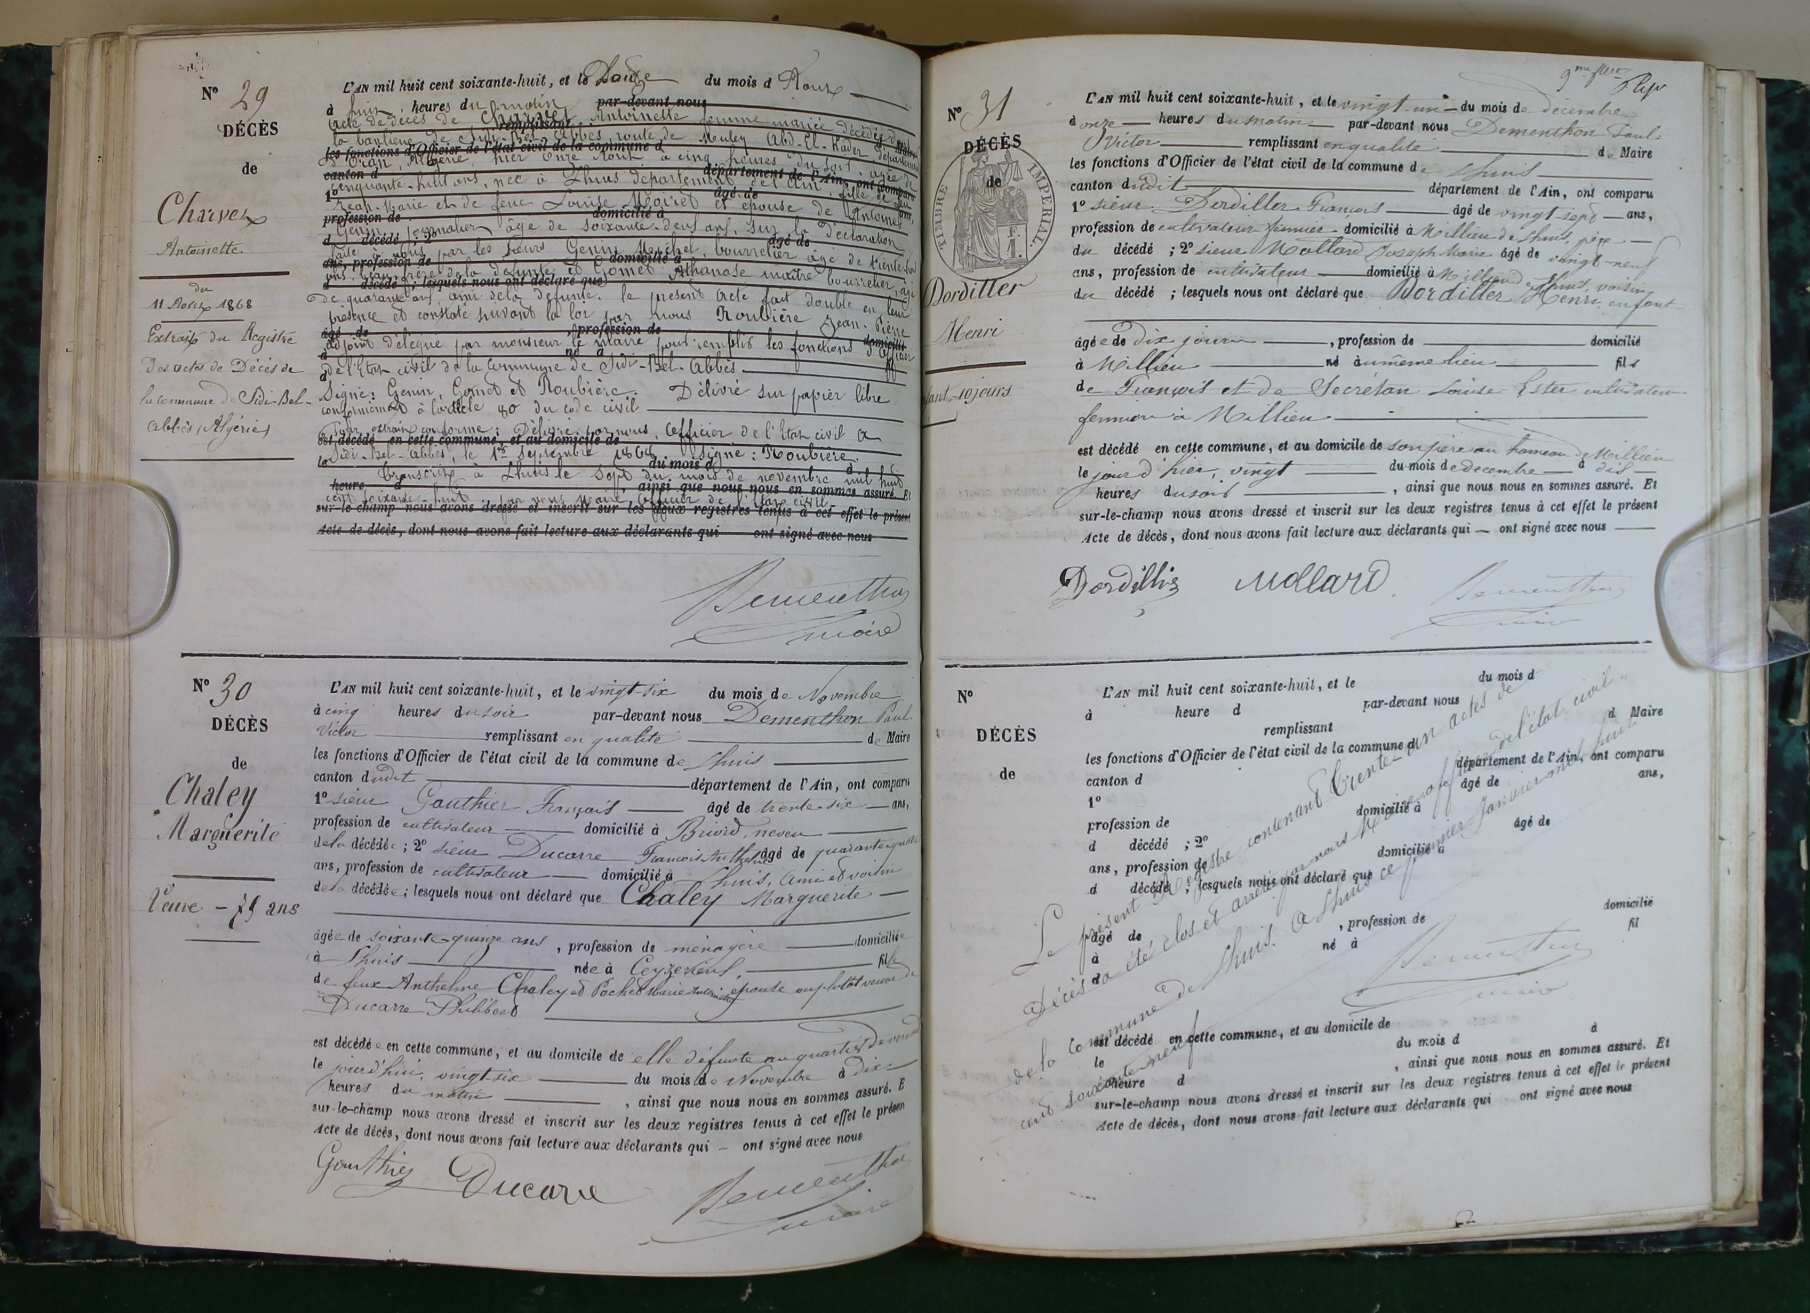 N° 29
DÉCÈS
de
Charvet
Antoinette
du
11 Août 1868
Extrait du Registre
Des actes de Décès de
la commune de Sidi-Bel-
Abbès (Algérie)
L'AN mil huit cent soixante-huit, et le Douze du mois d'Août
à huit heures du matin par-devant nous
acte de décès de Charvet Antoinette femme mariée décédée
remplissant
la banlieue de Sidi-Bel-Abbès route de Mouley Abd-El-Kader département
les fonctions d'Officier de l'état civil de la commune d
d'Oran, Algérie, hier onze Août à cinq heures du soir, agée de
canton d département de l'Ain, ont comparu
cinquante-huit ans, née à Lhuis département de l'Ain, fille de
1° âgé de ans,
Jean-Marie et de feue Louise et épouse de Antoine
profession de domicilié à
Genin, âgé de soixante-deux ans. Sur la déclaration
d décédé ; 2° âgé de
faite à nous par les sieurs Genin Michel, bourrelier âgé de trente-huit
ans, profession de domicilié à
ans de la défunte et Gomet Athanase maître bourrelier, âgé
d décédé ; lesquels nous ont déclaré que
de quarante ans, ami de la défunte. le présent acte fait double en leur
présence et constaté suivant la loi par nous Roubière Jean-Pierre
âgé de , profession de domicilié
adjoint délégué par monsieur le maire pour remplir les fonctions d'officier
à né à fil
de l'Etat civil de la commune de Sidi-Bel-Abbès
d
Signé: Genin, Gomet et Roubière. Délivré sur papier libre
conformément à l'article 80 du code civil
Pour extrait conforme: Délivré par nous, officier de l'Etat civil à
est décédé en cette commune, et au domicile de
Sidi-Bel-Abbès, le 1er septembre 1868 signé: Roubière.
le du mois d à
Transcrit à Lhuis le sept du mois de novembre mil huit
heure d ainsi que nous nous en sommes assuré. Et
cent soixante-huit par nous Maire, officier de l'Etat civil
sur-le-champ nous avons dressé et inscrit sur les deux registres tenus à cet effet le présent
Acte de décès, dont nous avons fait lecture aux déclarants qui ont signé avec nous
Dementhon
maire
N° 30
DÉCÈS
de
Chaley
Marguerite
Veuve - 75 ans
L'AN mil huit cent soixante-huit, et le vingt-six du mois de Novembre
à cinq heures du soir par-devant nous Dementhon Paul
Victor remplissant en qualité de Maire
les fonctions d'Officier de l'état civil de la commune de Lhuis
canton dudit département de l'Ain, ont comparu
1° sieur Gauthier François âgé de trente-six ans,
profession de cultivateur domicilié à Briord, neveu
de la décédée ; 2° sieur Ducarre François Anthelme âgé de quarante quatre
ans, profession de cultivateur domicilié à Lhuis, ami et voisin
de la décédée ; lesquels nous ont déclaré que Chaley Marguerite
âgée de soixante-quinze ans , profession de ménagère domiciliée
à Lhuis née à Ceyzérieu, fille
de feux Anthelme Chaley et Pochet Marie épouse ou plutôt veuve de
Ducarre Philibert
est décédée en cette commune, et au domicile de elle défunte au quartier
le jourd'hui, vingt-six du mois de Novembre à dix
heures du matin , ainsi que nous nous en sommes assuré. E
sur-le-champ nous avons dressé et inscrit sur les deux registres tenus à cet effet le présen
Acte de décès, dont nous avons fait lecture aux déclarants qui — ont signé avec nous
Gauthier Ducarre Dementhon
maire
9me
N° 31
DÉCÈS
de
TIMBRE IMPÉRIAL
Dorditter
Henri
10 jours
L'AN mil huit cent soixante-huit, et le vingt-un du mois de décembre
à onze heures du matin par-devant nous Dementhon Paul
Victor remplissant en qualité de Maire
les fonctions d'Officier de l'état civil de la commune de Lhuis
canton dudit département de l'Ain, ont comparu
1° sieur Dorditter François âgé de vingt-sept ans,
profession de cultivateur fermier domicilié à Millieu de Lhuis, père
du décédé ; 2° sieur Mollard Joseph Marie âgé de vingt-neuf
ans, profession de cultivateur domicilié à Millieu de Lhuis, voisin
du décédé ; lesquels nous ont déclaré que Dorditter Henri, enfant
âgé de dix jours , profession de domicilié
à Millieu né à u même lieu fils
de François et de Secrétan Louise Ester cultivateur
fermier à Millieu
est décédé en cette commune, et au domicile de son père au hameau de Millieu
le jour d'hier, vingt du mois de Décembre à dix
heures du soir , ainsi que nous nous en sommes assuré. Et
sur-le-champ nous avons dressé et inscrit sur les deux registres tenus à cet effet le présent
Acte de décès, dont nous avons fait lecture aux déclarants qui — ont signé avec nous
Mollard Dementhon
maire
N°
DÉCÈS
de
L'AN mil huit cent soixante-huit, et le du mois d
à heure d par-devant nous
remplissant d Maire
les fonctions d'Officier de l'état civil de la commune d
canton d département de l'Ain, ont comparu
1° âgé de ans,
profession de domicilié à
d décédé ; 2° âgé de
ans, profession de domicilié à
d décédé ; lesquels nous ont déclaré que
âgé de , profession de domicilié
à né à fil
d
est décédé en cette commune, et au domicile de
le du mois d à
heure d , ainsi que nous nous en sommes assuré. Et
sur-le-champ nous avons dressé et inscrit sur les deux registres tenus à cet effet le présent
Acte de décès, dont nous avons fait lecture aux déclarants qui ont signé avec nous
Le présent Registre contenant Trente-un actes de
Décès a été clos et arrêté par nous Maire officier de l'état civil
de la commune de Lhuis. A Lhuis ce premier Janvier mil huit
cent soixante neuf
Dementhon
maire